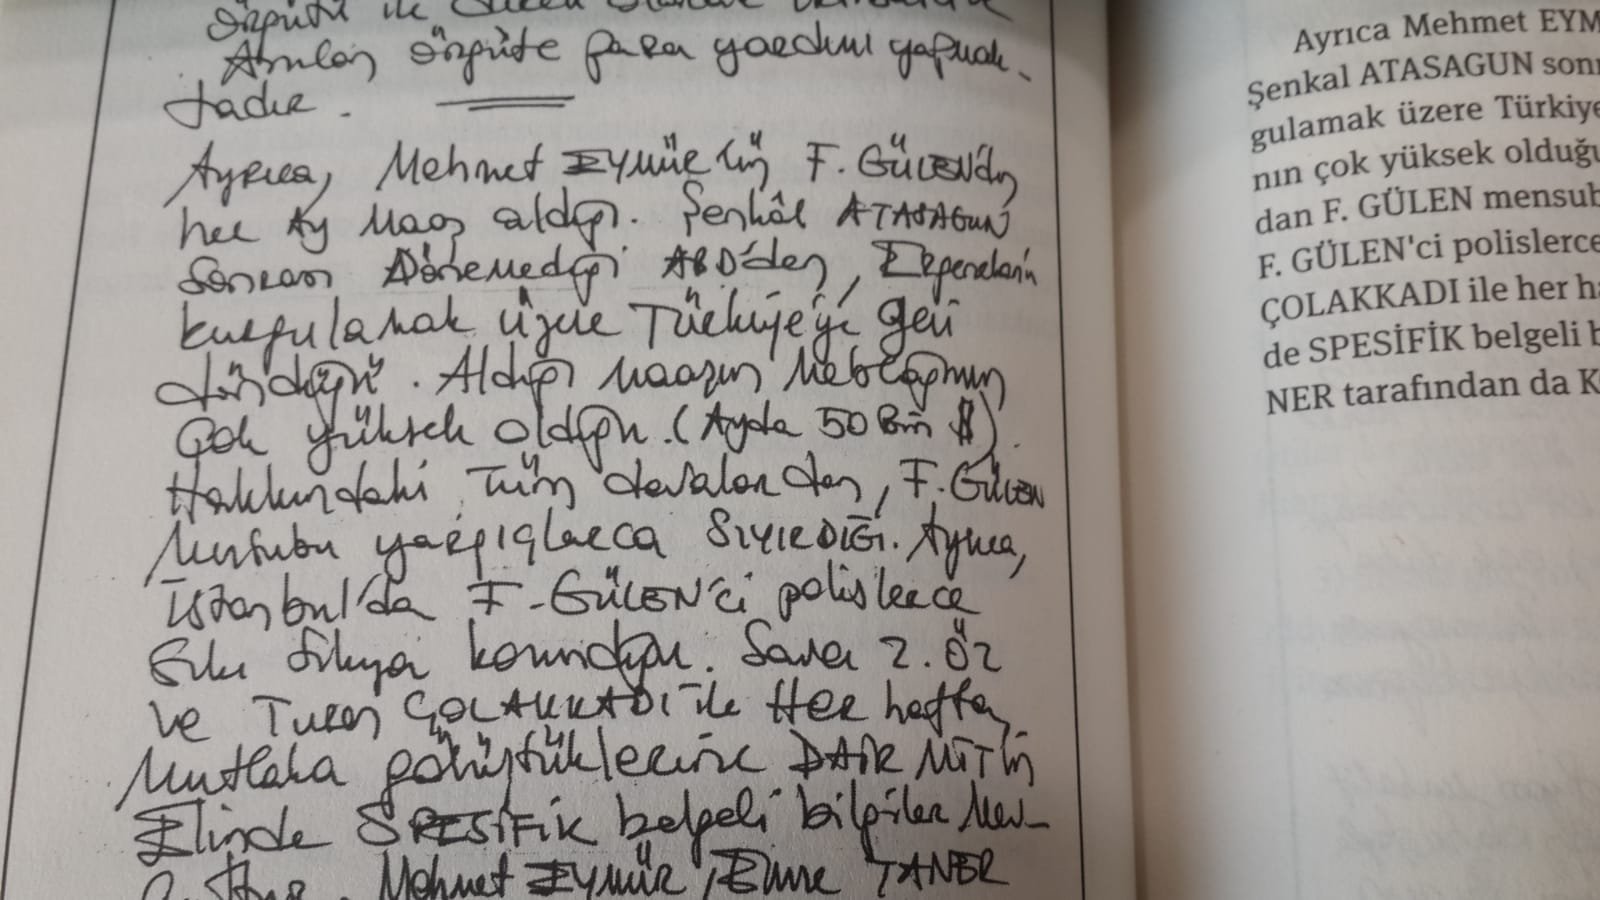 örgütü ile
Anılan örgüte para yardımı yapmak-
tadır.
Ayrıca, Mehmet EYMÜR'ün F. GÜLEN'den
her Ay Maaş aldığı. Şenkâl ATASAGUN
Sonrası Dönemediği ABD'den, Ergenekon'u
kurgulamak üzere Türkiye'ye geri
döndüğü. Aldığı maaşın Meblağının
Çok yüksek olduğu. (Ayda 50 Bin $).
Hakkındaki Tüm davalardan, F. GÜLEN
Mensubu yargıçlarca SIYIRDIĞI. Ayrıca,
İstanbul'da F. GÜLEN'ci polislerce
Sıkı Sıkıya korunduğu. Savcı Z. ÖZ
ve Turan ÇOLAKKADI ile HER hafta,
Mutlaka görüştüklerine DAİR MİT'in
Elinde SPESİFİK belgeli bilgiler Mev-
Mehmet EYMÜR, Emre TANER
Ayrıca Mehmet EYM
Şenkal ATASAGUN son
gulamak üzere Türkiye
nın çok yüksek olduğu
dan F. GÜLEN mensub
F. GÜLEN'ci polislerce
ÇOLAKKADI ile her ha
de SPESİFİK belgeli b
NER tarafından da K